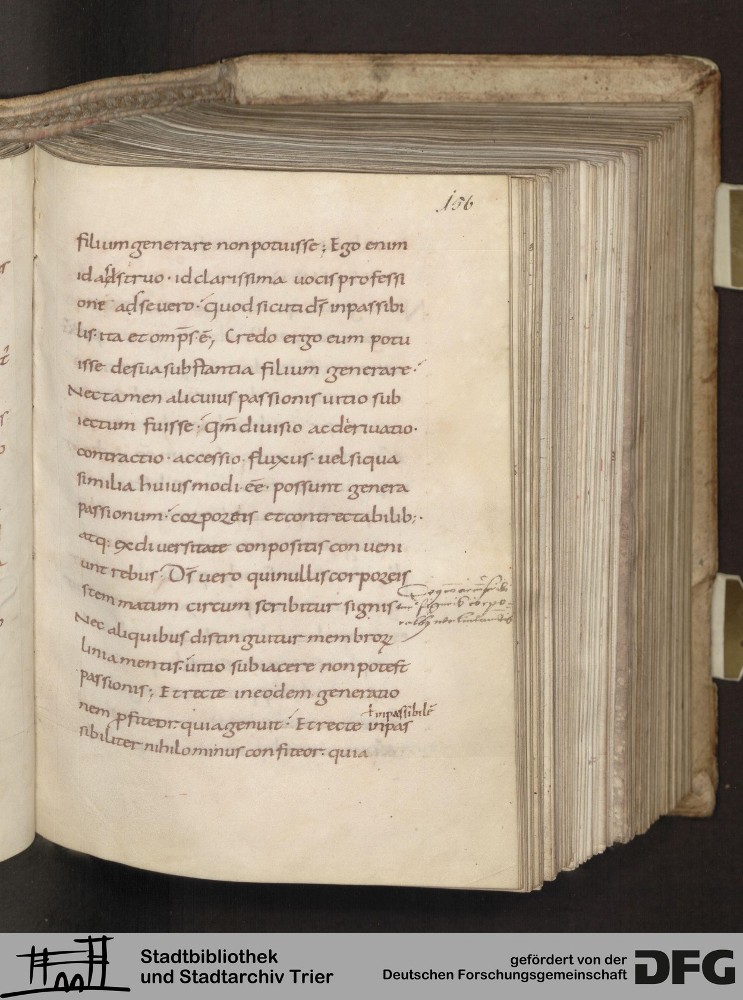 156
filium generare non potuisse; Ego enim
id adstruo· id clarissima uocis professi
one adseuero· quod sicuti dꝭ inpassibi
lis· ita et omp̄s ē, Credo ergo eum potu
isse de sua substantia filium generare·
Nec tamen alicuius passionis uitio sub
iectum fuisse· qm̄ diuisio ac deriuatio·
contractio· accessio· fluxus· uel siqua
similia huius modi· eē· possunt genera
passionum· corporeis et contrectabilib;·
atq: ex diuersitate conpositis conueni
unt rebus· Dꝭ uero qui nullis corporeis
stemmatum circum scribitur signis
Nec aliquibus distinguitur membroꝝ
liniamentis· uitio subiacere non potest
passionis; Et recte in eodem generatio
nem ꝓfiteor· quia genuit· Et recte inpas
ł inpassibilē
sibiliter nihilominus confiteor· quia
Stadtbibliothek
und Stadtarchiv Trier
gefördert von der
Deutschen Forschungsgemeinschaft
DFG